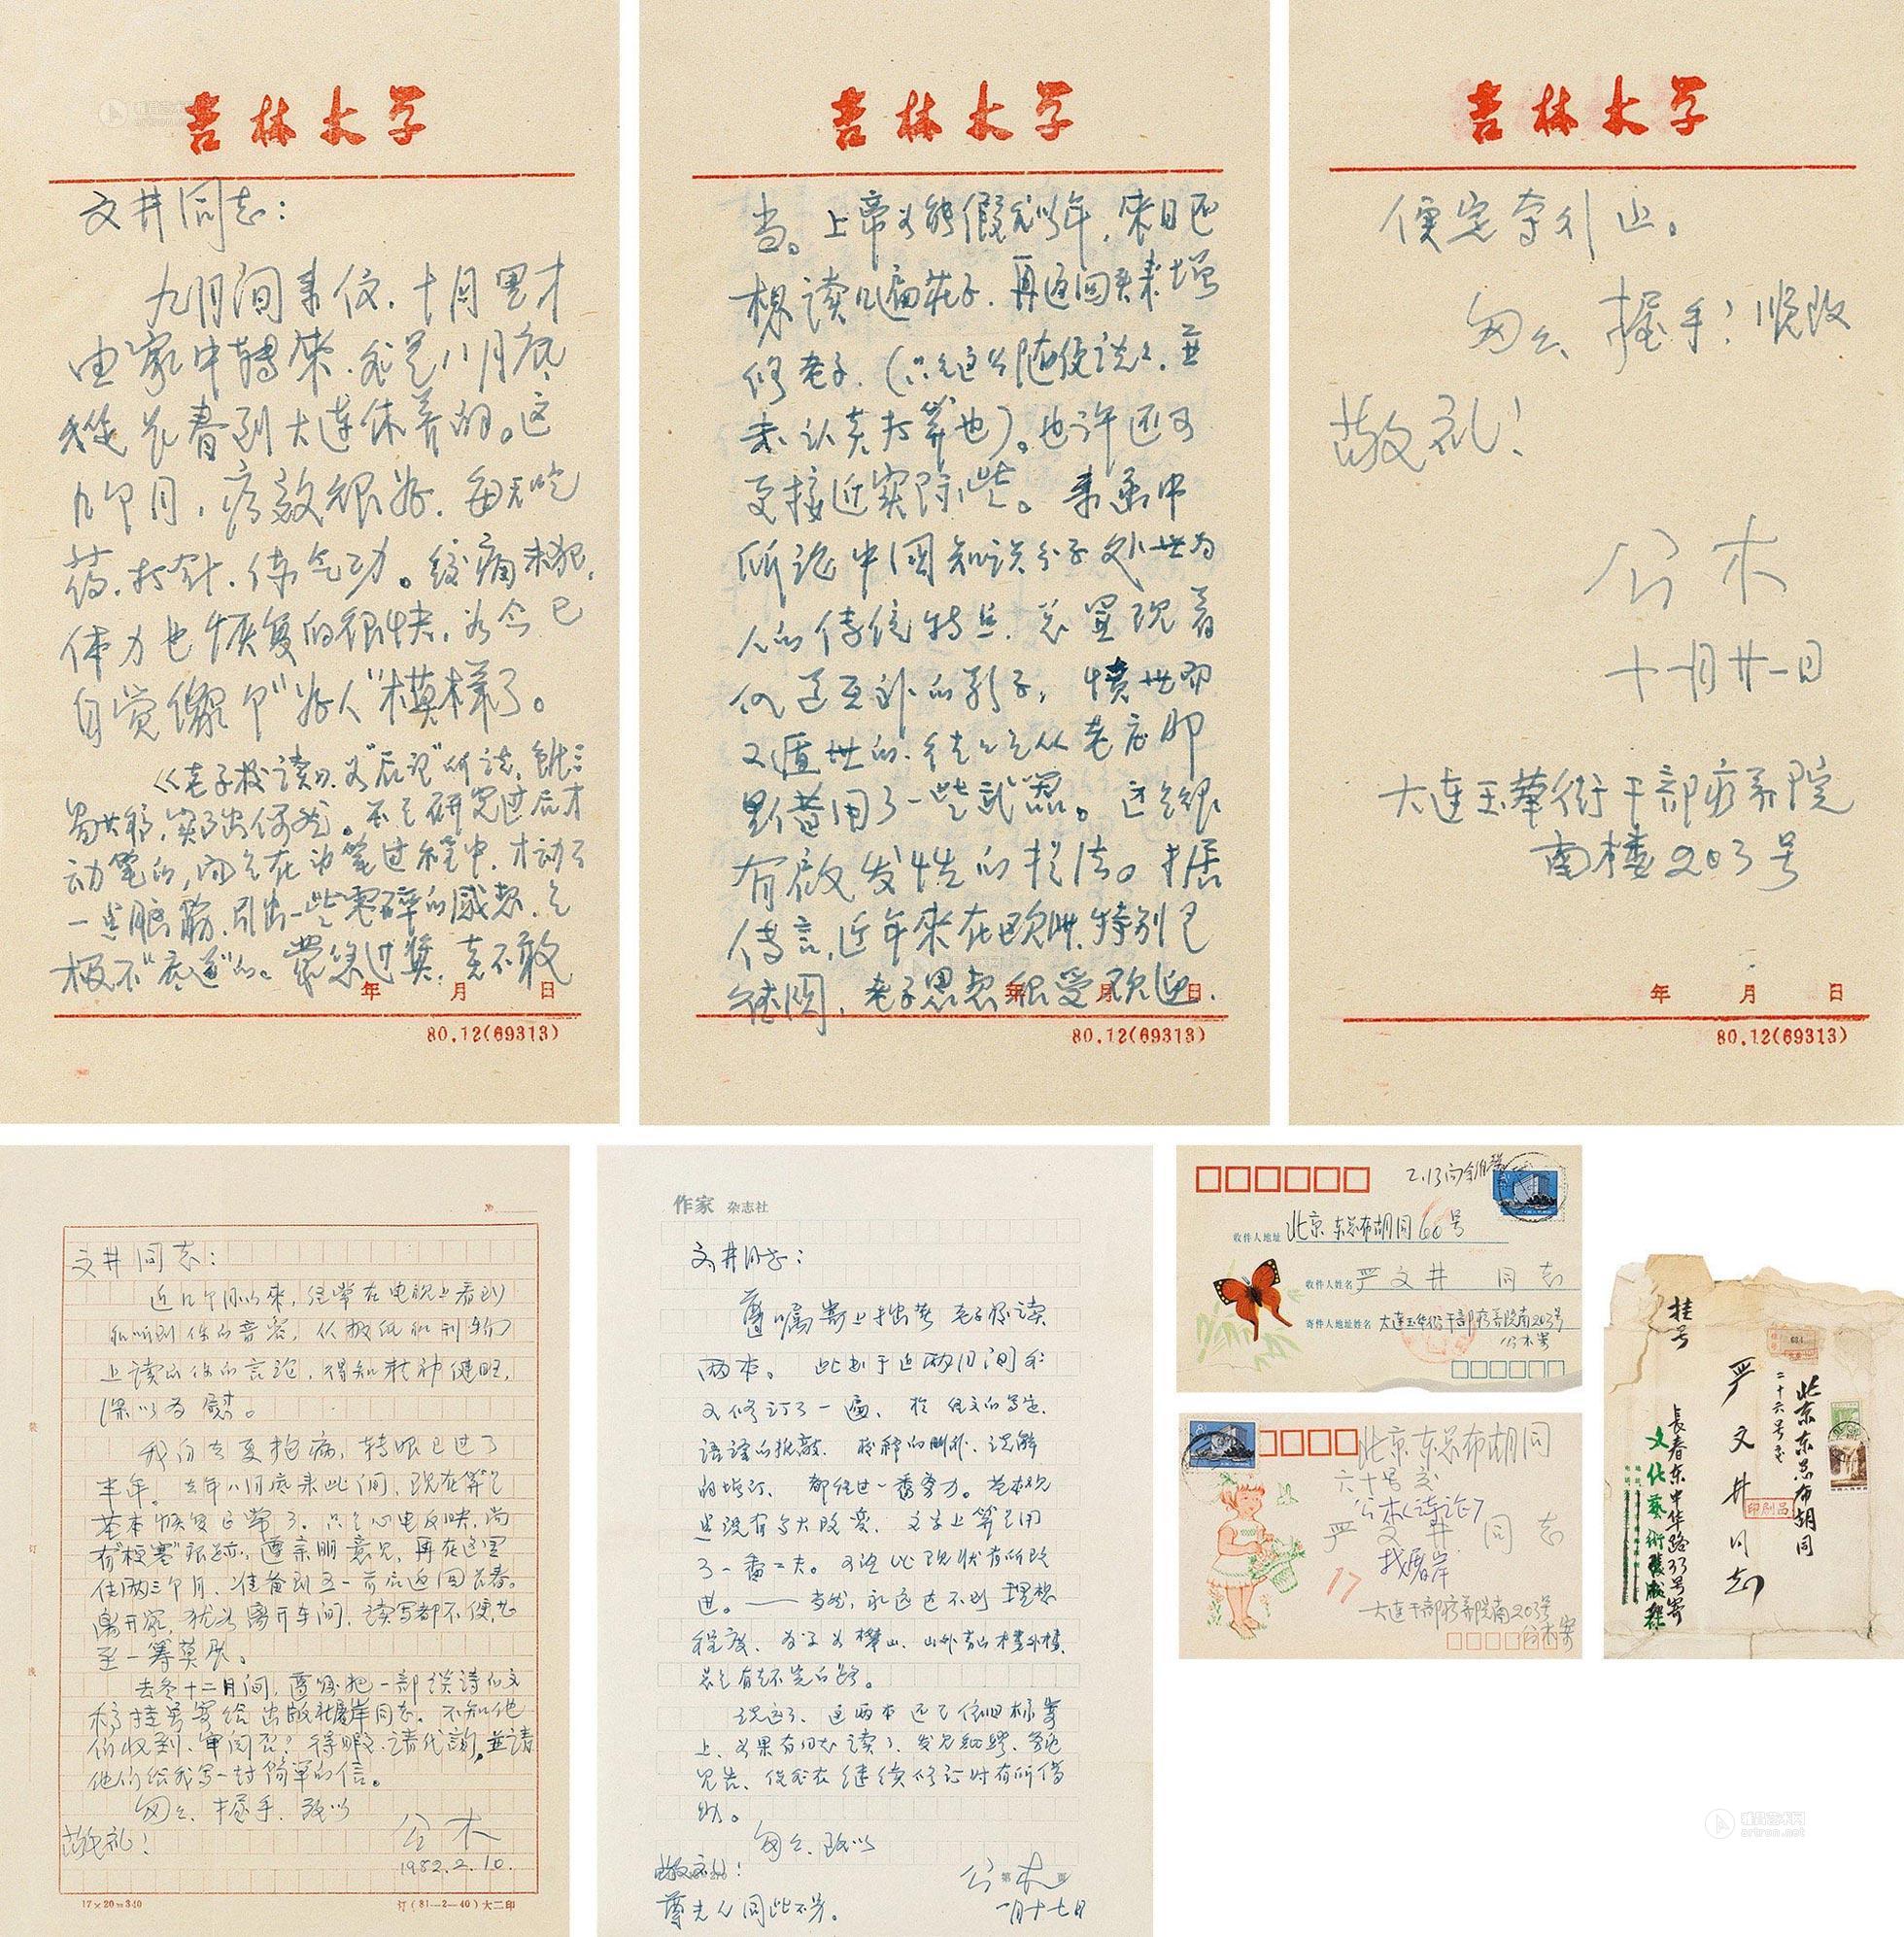 吉林大学
文井同志：
九月间来信，十月里才
由家中转来。我是八月底
从长春到大连休养的。这
几个月，疗效很好，每天吃
药、打针、练气功。绞痛未犯，
体力也恢复的很快，如今已
自觉像个“好人”模样了。
《老子校读》，如“后记”所说，虽三
易其稿，实乃出偶然。不是研究过后才
动笔的，而是在动笔过程中，才动了
一点脑筋，引出一些零碎的感想，是
极不“底道”的。蒙您过奖，克不敢
年 月 日
80.12(69313)
吉林大学
当。上帝如能假我以年，来日还
想读几遍庄子，再返回来增
修老子（只是这么随便说说，并
未认真打算也）。也许还可
更接近实际些。来函中
所论中国知识分子处世为
人的传统特点，总呈现着
儒道互补的影子，愤世而
又遁世的，往往是从老庄那
里借用了一些武器。这是很
有启发性的提法。据
传言，近年来在欧洲，特别是
德国，老子思想很受欢迎，
年 月 日
80.12(69313)
吉林大学
便定夺行止。
匆匆，握手！顺致
敬礼！
公木
十一月廿一日
大连玉华街干部疗养院
南楼203号
年 月 日
80.12(69313)
文井同志：
近几个月以来，经常在电视上看到
和听到你的音容，从报纸和刊物
上读到你的言论，得知精神健旺，
深以为慰。
我自去夏抱病，转眼已过了
半年。去年八月底来此间，现在算是
基本恢复正常了。只是心电反映，尚
有“梗塞”痕迹，遵亲朋意见，再在这里
住两三个月，准备到五一前后返回长春。
离开家，犹如离开车间，读写都不便，甚
至一筹莫展。
去冬十二月间，遵嘱把一部谈诗的文
稿挂号寄给出版社屠岸同志。不知他
们收到、审阅否？得暇，请代询，并请
他们给我写一封简单的信。
匆匆，握手，致以
敬礼！
公木
1982.2.10.
17×20=340
订(81—2—40)大二印
装 订 线
作家 杂志社
文井同志：
遵嘱寄上拙著老子校读
两本。此书于近两月间我
又修订了一遍，于经文的写定、
语译的推敲、校释的删补、说解
的增订，都经过一番努力。基本观
点没有多大改变，文字上算是用
了一番工夫。可说比现状有所改
进。——当然，永远达不到理想
程度，为学如攀山，山外青山楼外楼，
总是有走不完的路。
现在，这两本还是依旧标寄
上，如果有同志读了，发见纰缪，务祈
见告，使我在继续修订时有所借
助。
匆匆，致以
敬礼！
尊夫人同此不另。
公木
一月十七日
第 页
2.13
收件人地址 北京东总布胡同60号
收件人姓名 严文井 同志
寄件人地址姓名 大连玉华街干部疗养院南203号
公木寄
北京东总布胡同
六十号交
公木《诗论》
严文井 同志
找屠岸
17
大连干部疗养院南203号
公木寄
挂号
北京东总布胡同
二十六号交
严文井同志
印刷品
长春东中华路33号寄
文化艺术出版社
雅昌艺术网
artron.net